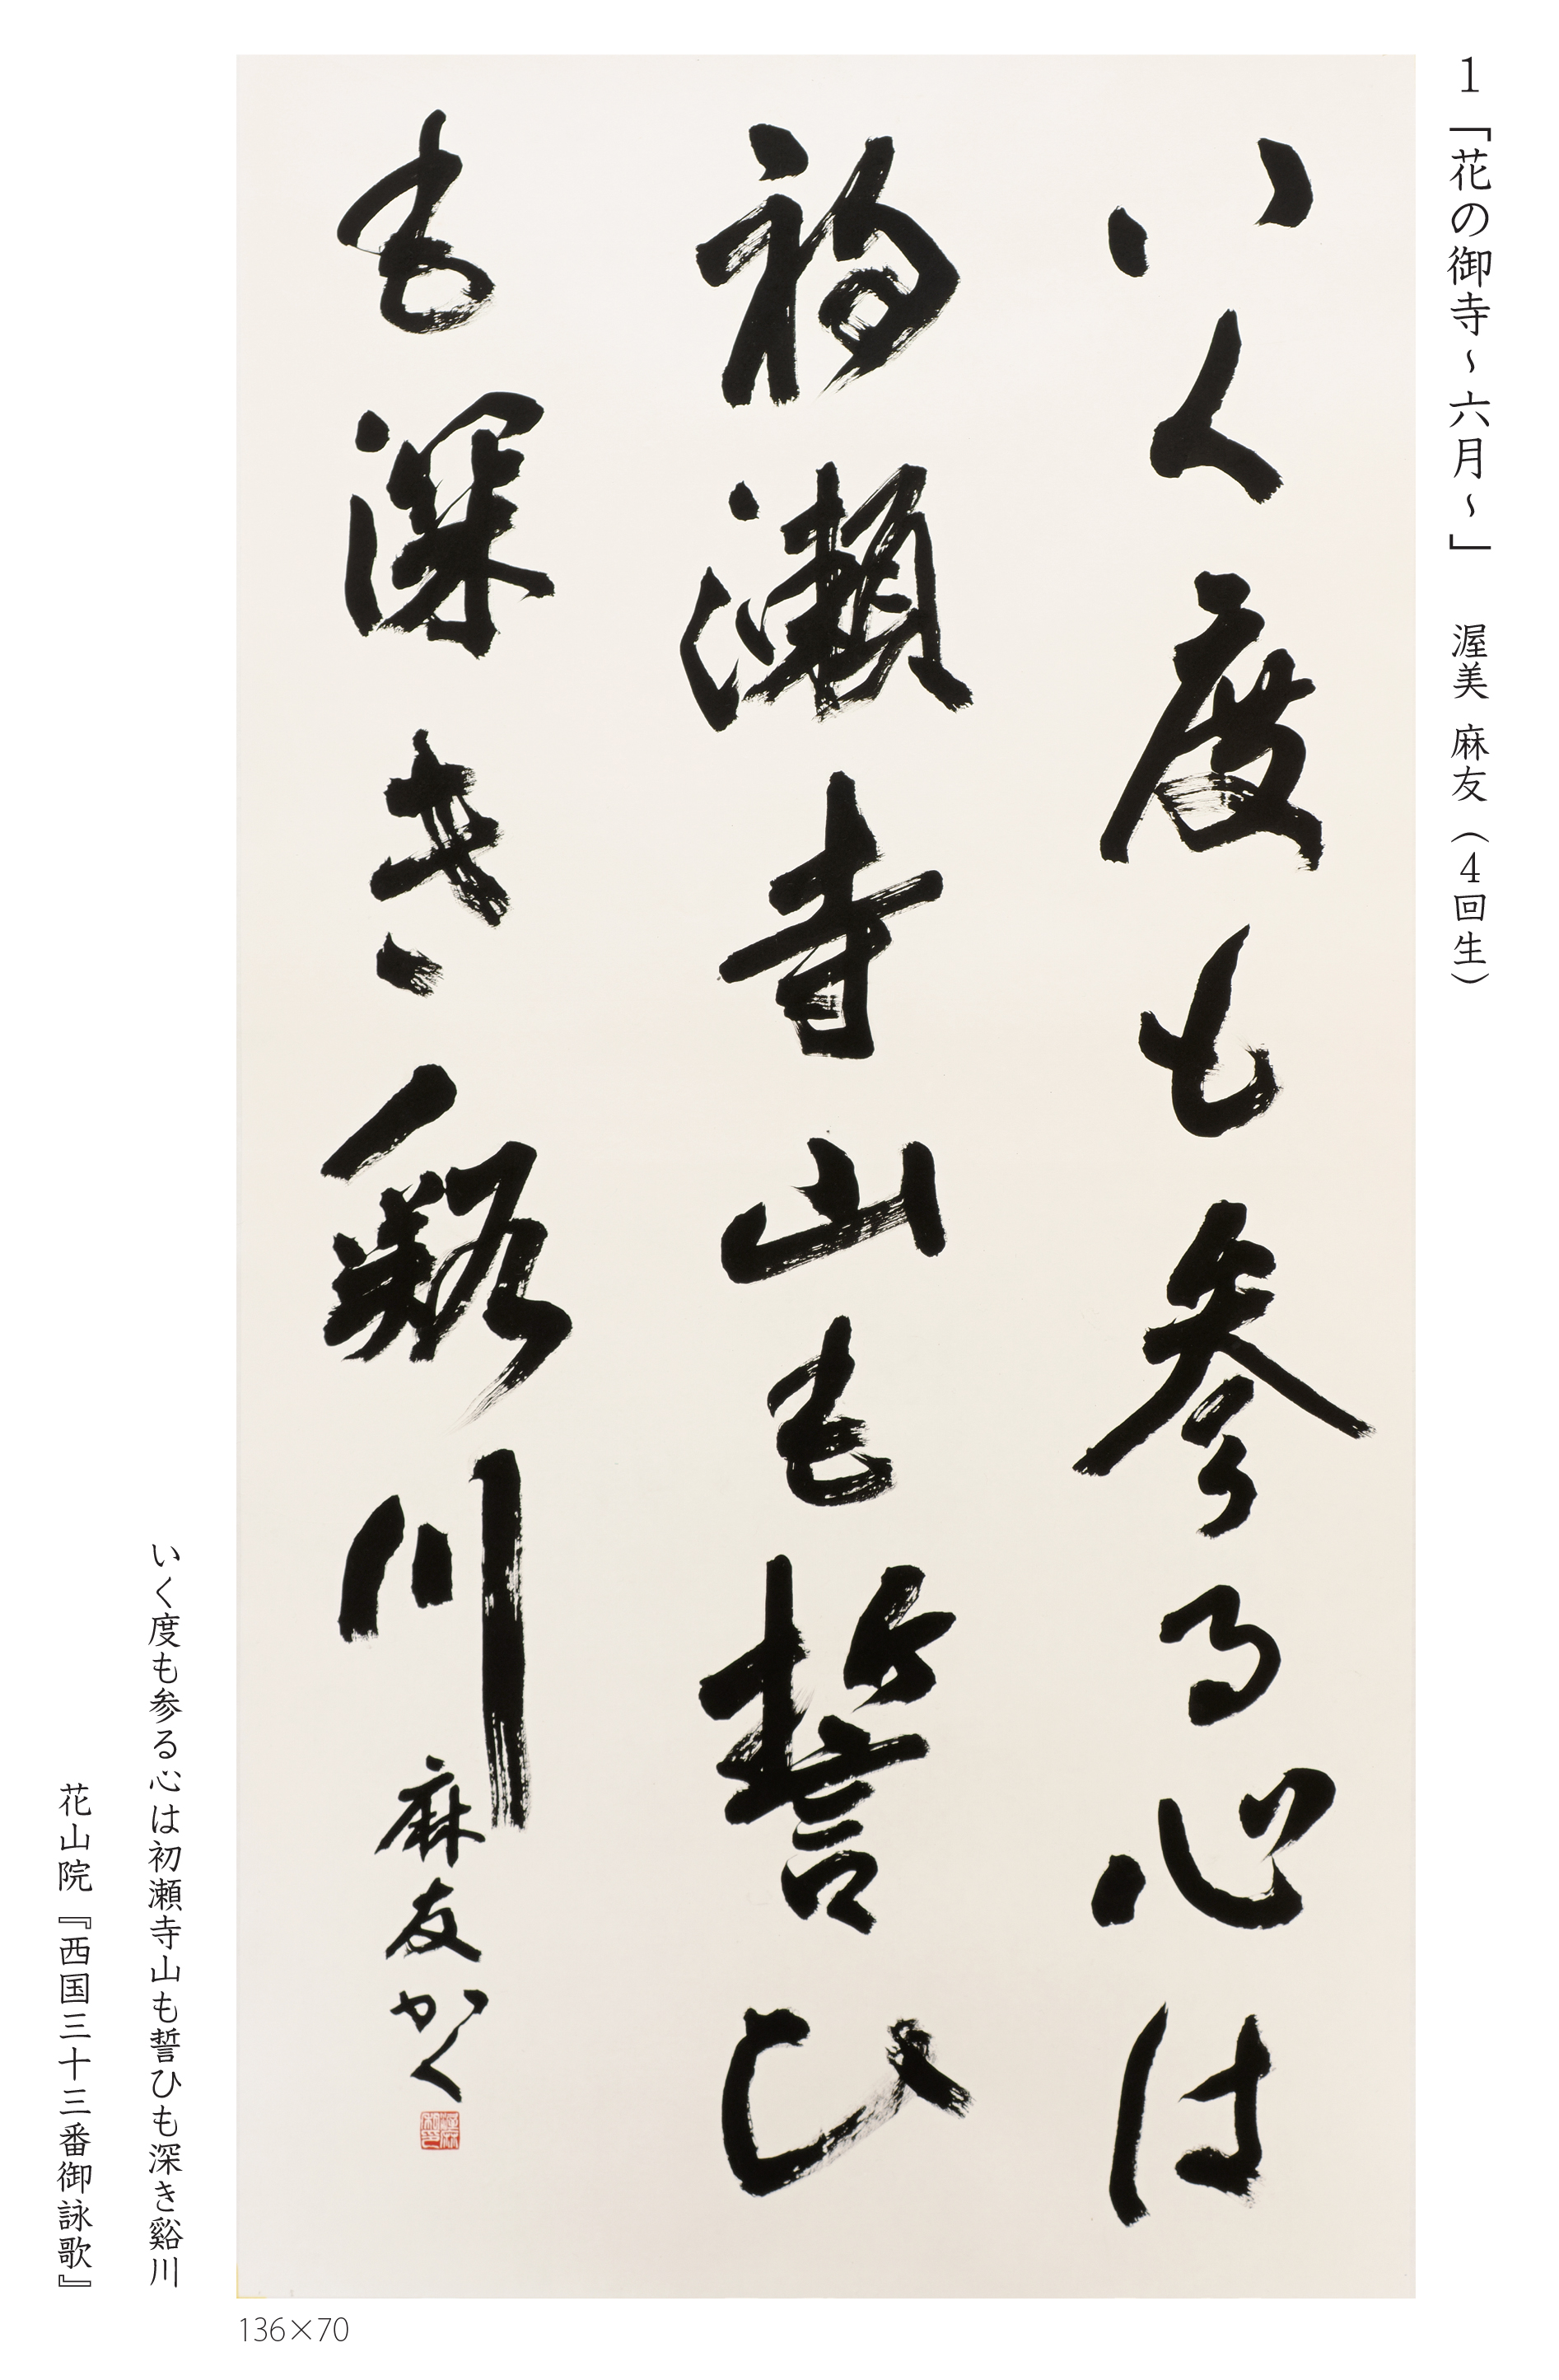 1「花の御寺~六月~」 渥美 麻友(4回生)
いく度も参る心は
初瀬寺山も誓ひ
も深き谿川
麻友かく
いく度も参る心は初瀬寺山も誓ひも深き谿川
花山院『西国三十三番御詠歌』
136×70